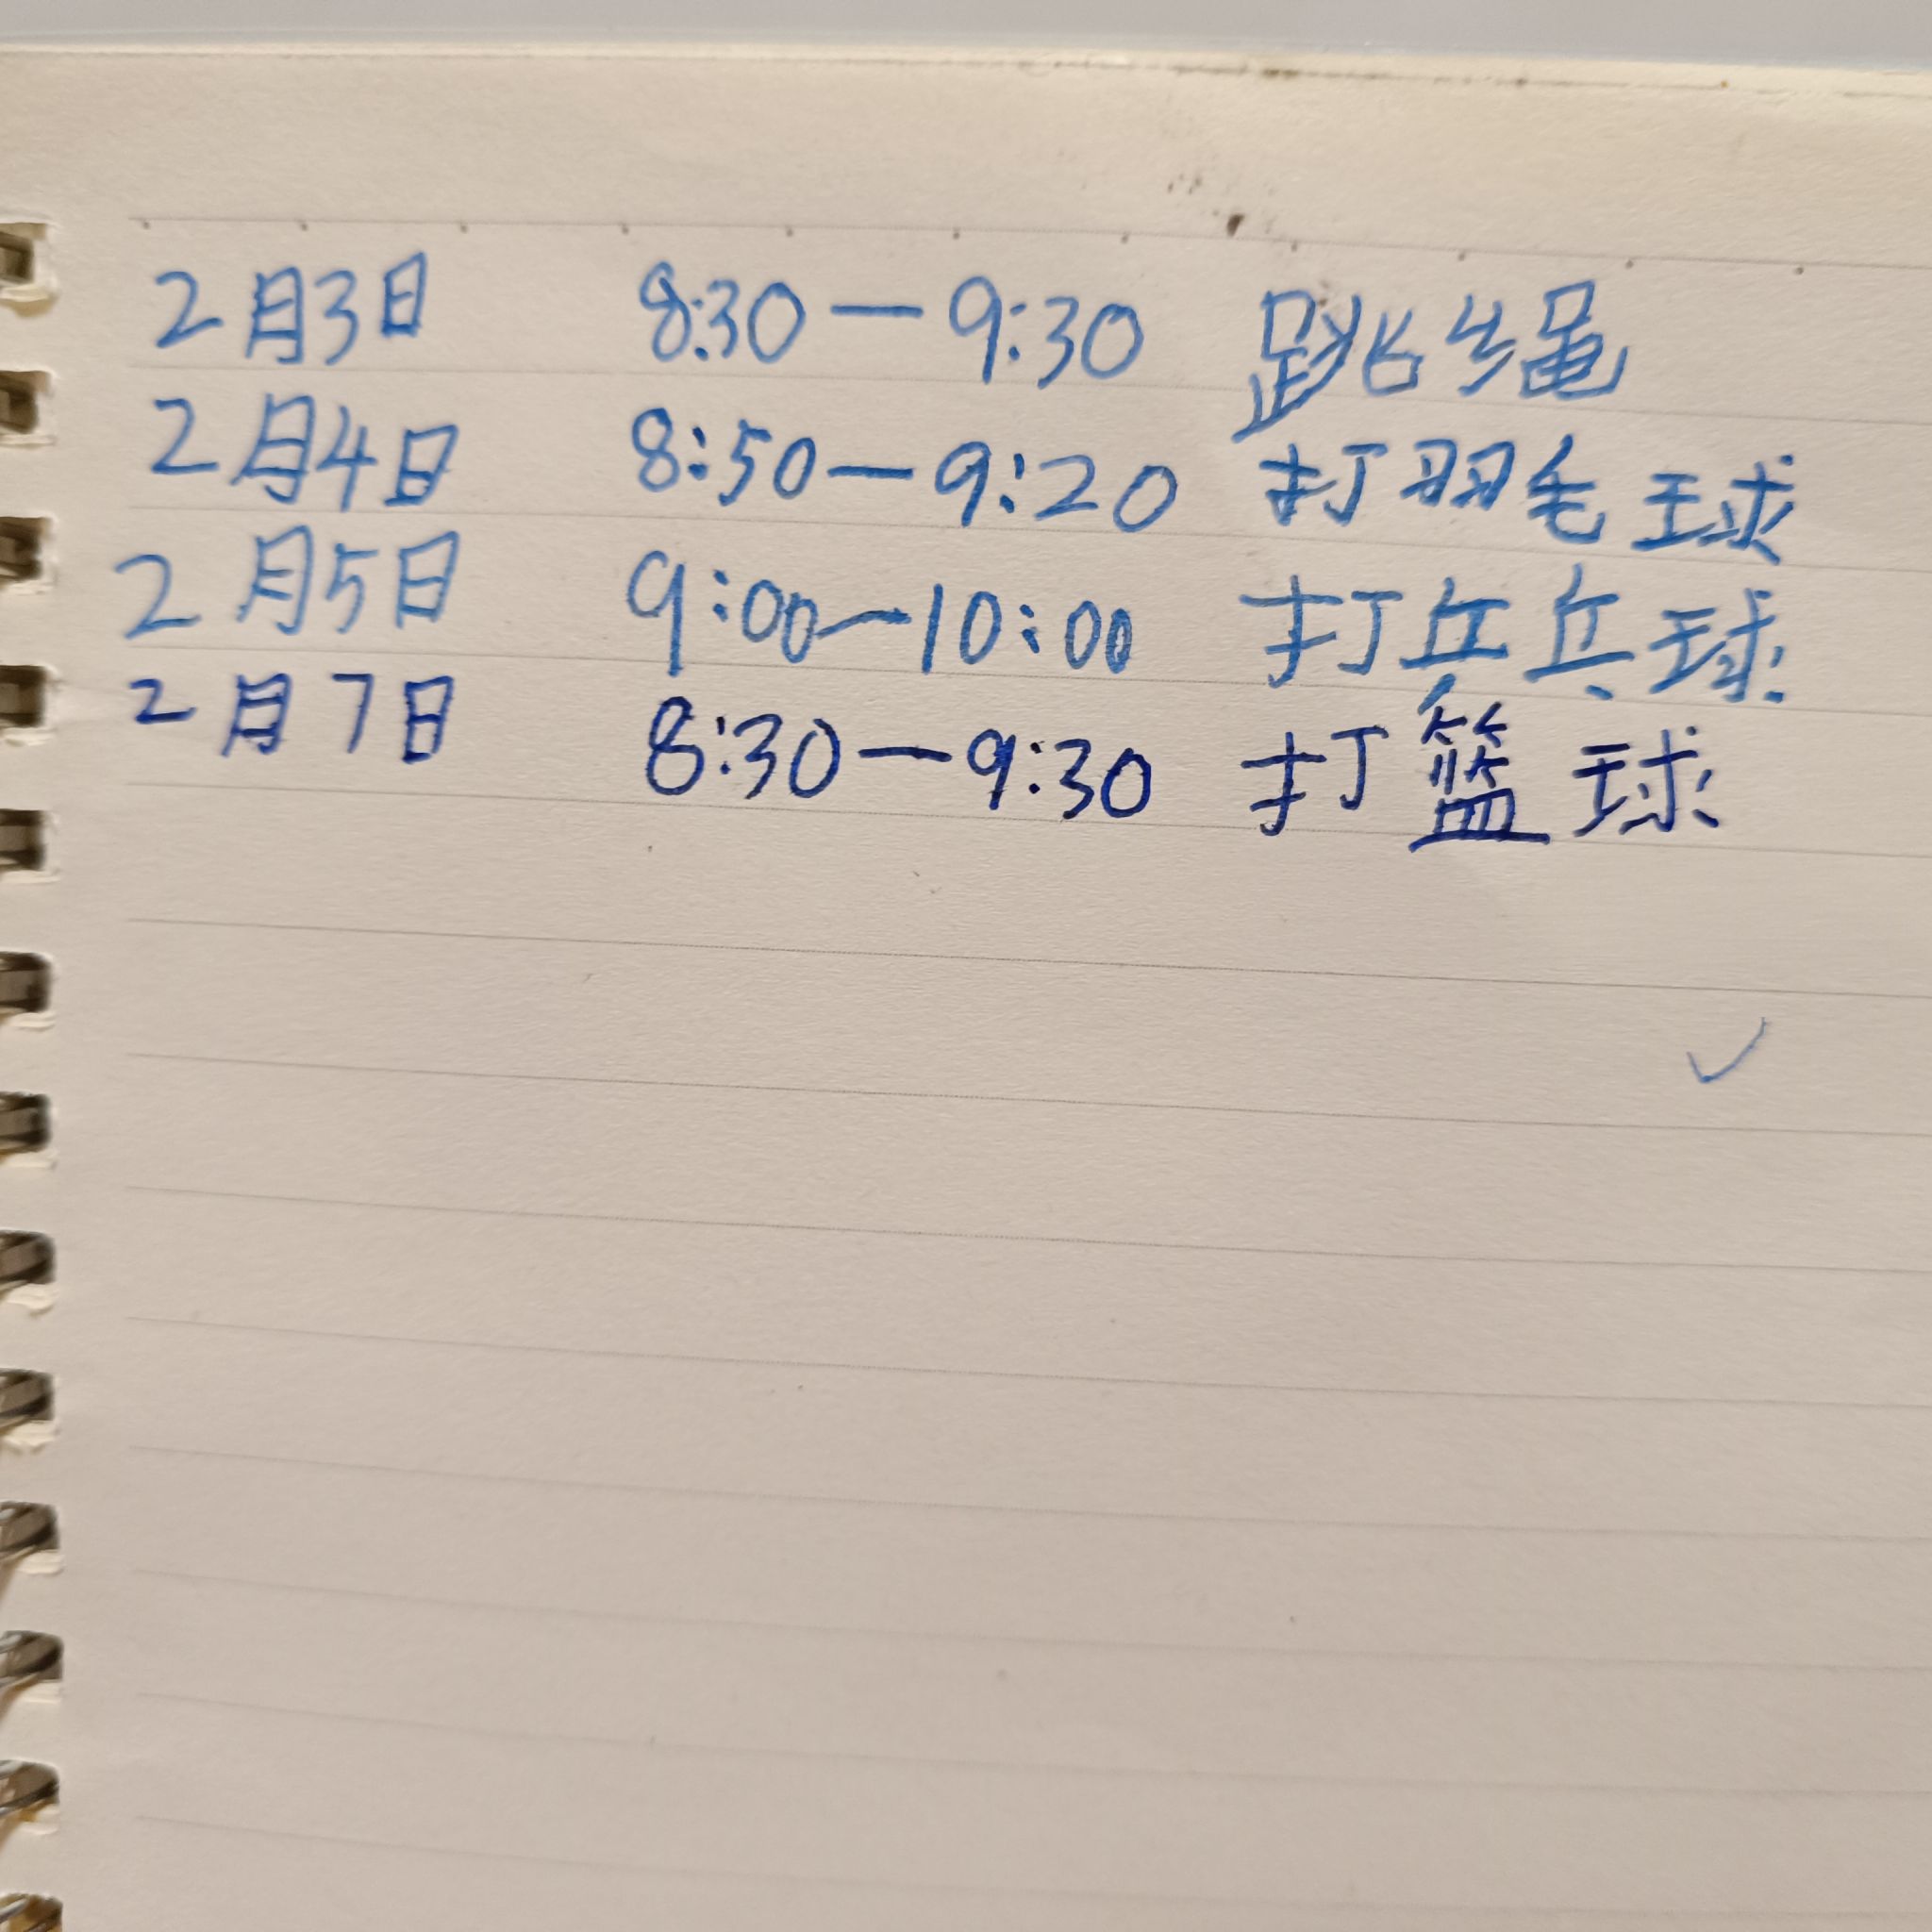 2月3日 8:30—9:30 跳绳
2月4日 8:50—9:20 打羽毛球
2月5日 9:00—10:00 打乒乓球
2月7日 8:30—9:30 打篮球